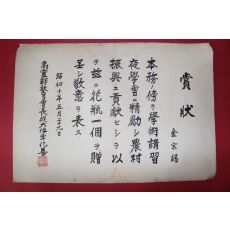 賞狀
金宗錫
本務ノ傍ラ學術講習
夜學會ニ精勵シ農村
振興ニ貢獻セシヲ以
テ玆ニ花瓶一個ヲ贈
呈シ敬意ヲ表ス
昭和十年五月二十九日
高靈郡教育會長